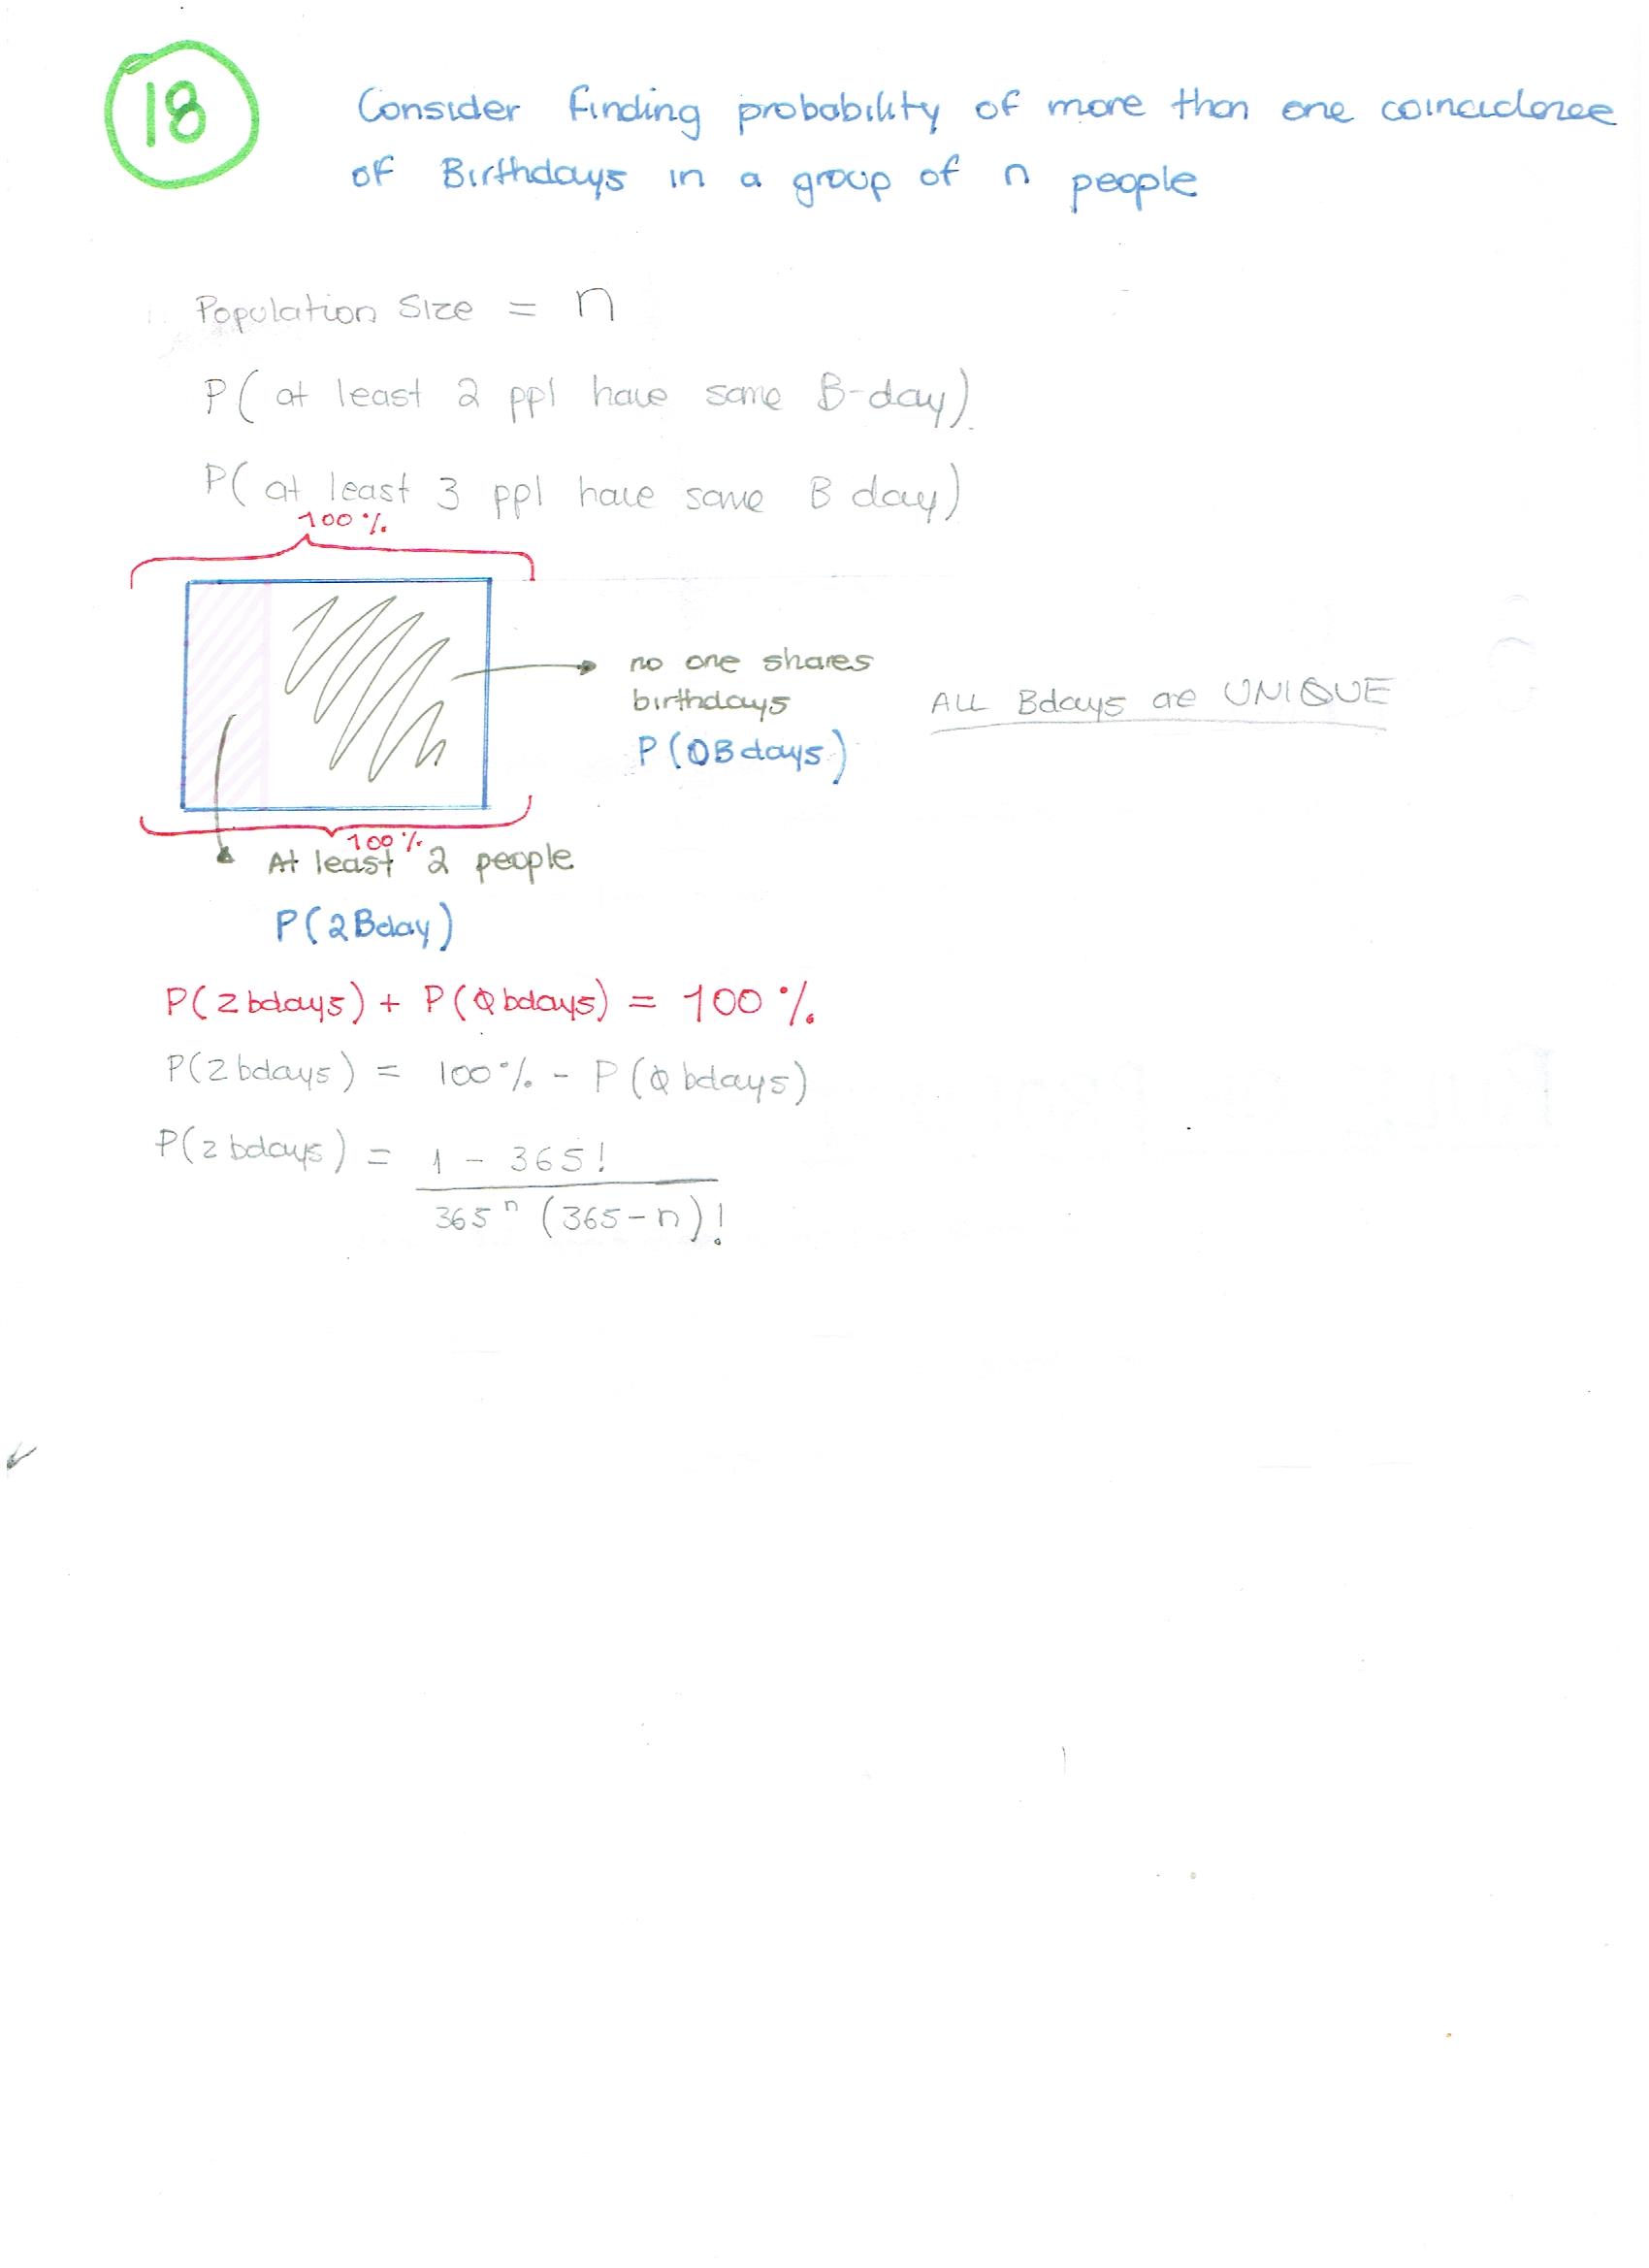 18
Consider finding probability of more than one coincidence
of Birthdays in a group of n people
Population Size = n
P( at least 2 ppl have same B-day)
P( at least 3 ppl have same B day)
100 %
no one shares
birthdays
P(0Bdays)
ALL Bdays are UNIQUE
100 %
At least 2 people
P(2Bday)
P(2bdays) + P(0bdays) = 100 %
P(2bdays) = 100% - P(0bdays)
P(2bdays) = 1 - 365!
365ⁿ (365-n)!